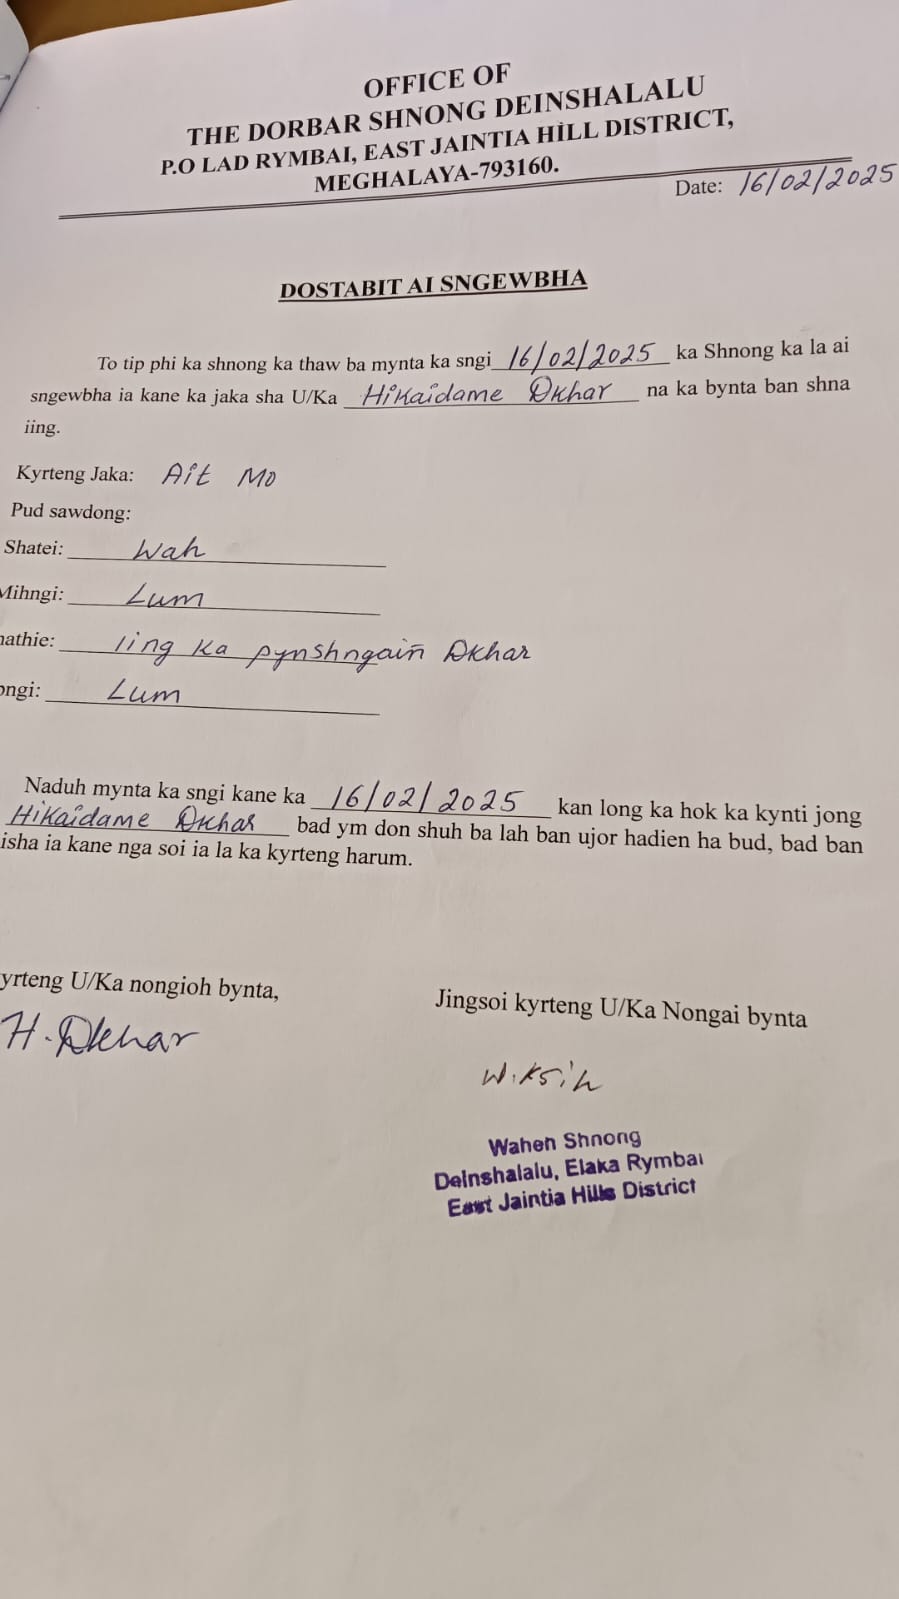 OFFICE OF
THE DORBAR SHNONG DEINSHALALU
P.O LAD RYMBAI, EAST JAINTIA HILL DISTRICT,
MEGHALAYA-793160.
Date: 16/02/2025
DOSTABIT AI SNGEWBHA
To tip phi ka shnong ka thaw ba mynta ka sngi 16/02/2025 ka Shnong ka la ai
sngewbha ia kane ka jaka sha U/Ka Hikaidame Dkhar na ka bynta ban shna
iing.
Kyrteng Jaka: Ait Mo
Pud sawdong:
Shatei: Wah
Mihngi: Lum
hathie: Iing ka pynshngaiñ Dkhar
ongi: Lum
Naduh mynta ka sngi kane ka 16/02/2025 kan long ka hok ka kynti jong
Hikaidame Dkhar bad ym don shuh ba lah ban ujor hadien ha bud, bad ban
isha ia kane nga soi ia la ka kyrteng harum.
yrteng U/Ka nongioh bynta,
Jingsoi kyrteng U/Ka Nongai bynta
H. Dkhar
W. Ksih
Wahen Shnong
Deinshalalu, Elaka Rymbai
East Jaintia Hills District